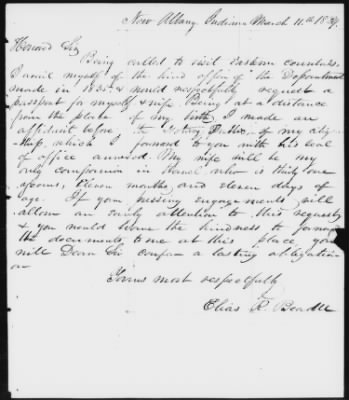 New Albany Indiana March 11th 18
Honored Sir
Being called to visit Eastern countries
I avail myself of the kind offer of the Department
made in 1835 & would respectfully request a
passport for myself & wife. Being at a distance
from the place of my birth, I made an
affidavit before Notary Public of my citizen
ship, which I forward to you with his seal
of office annexed. My wife will be my
only companion in travel who is thirty one
years, Eleven months and eleven days of
age. If your pressing engagements will
allow an early attention to this request
& you would have the kindness to forward
the documents to me at this place you
will Dear Sir confer a lasting obligation
on
Yours most respectfully
Elias R. Beadle